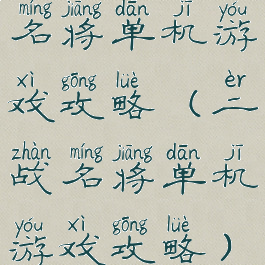 míng jiāng dān jī yóu
名将单机游
xì gōng lüè èr
戏攻略（二
zhàn míng jiāng dān jī
战名将单机
yóu xì gōng lüè
游戏攻略）